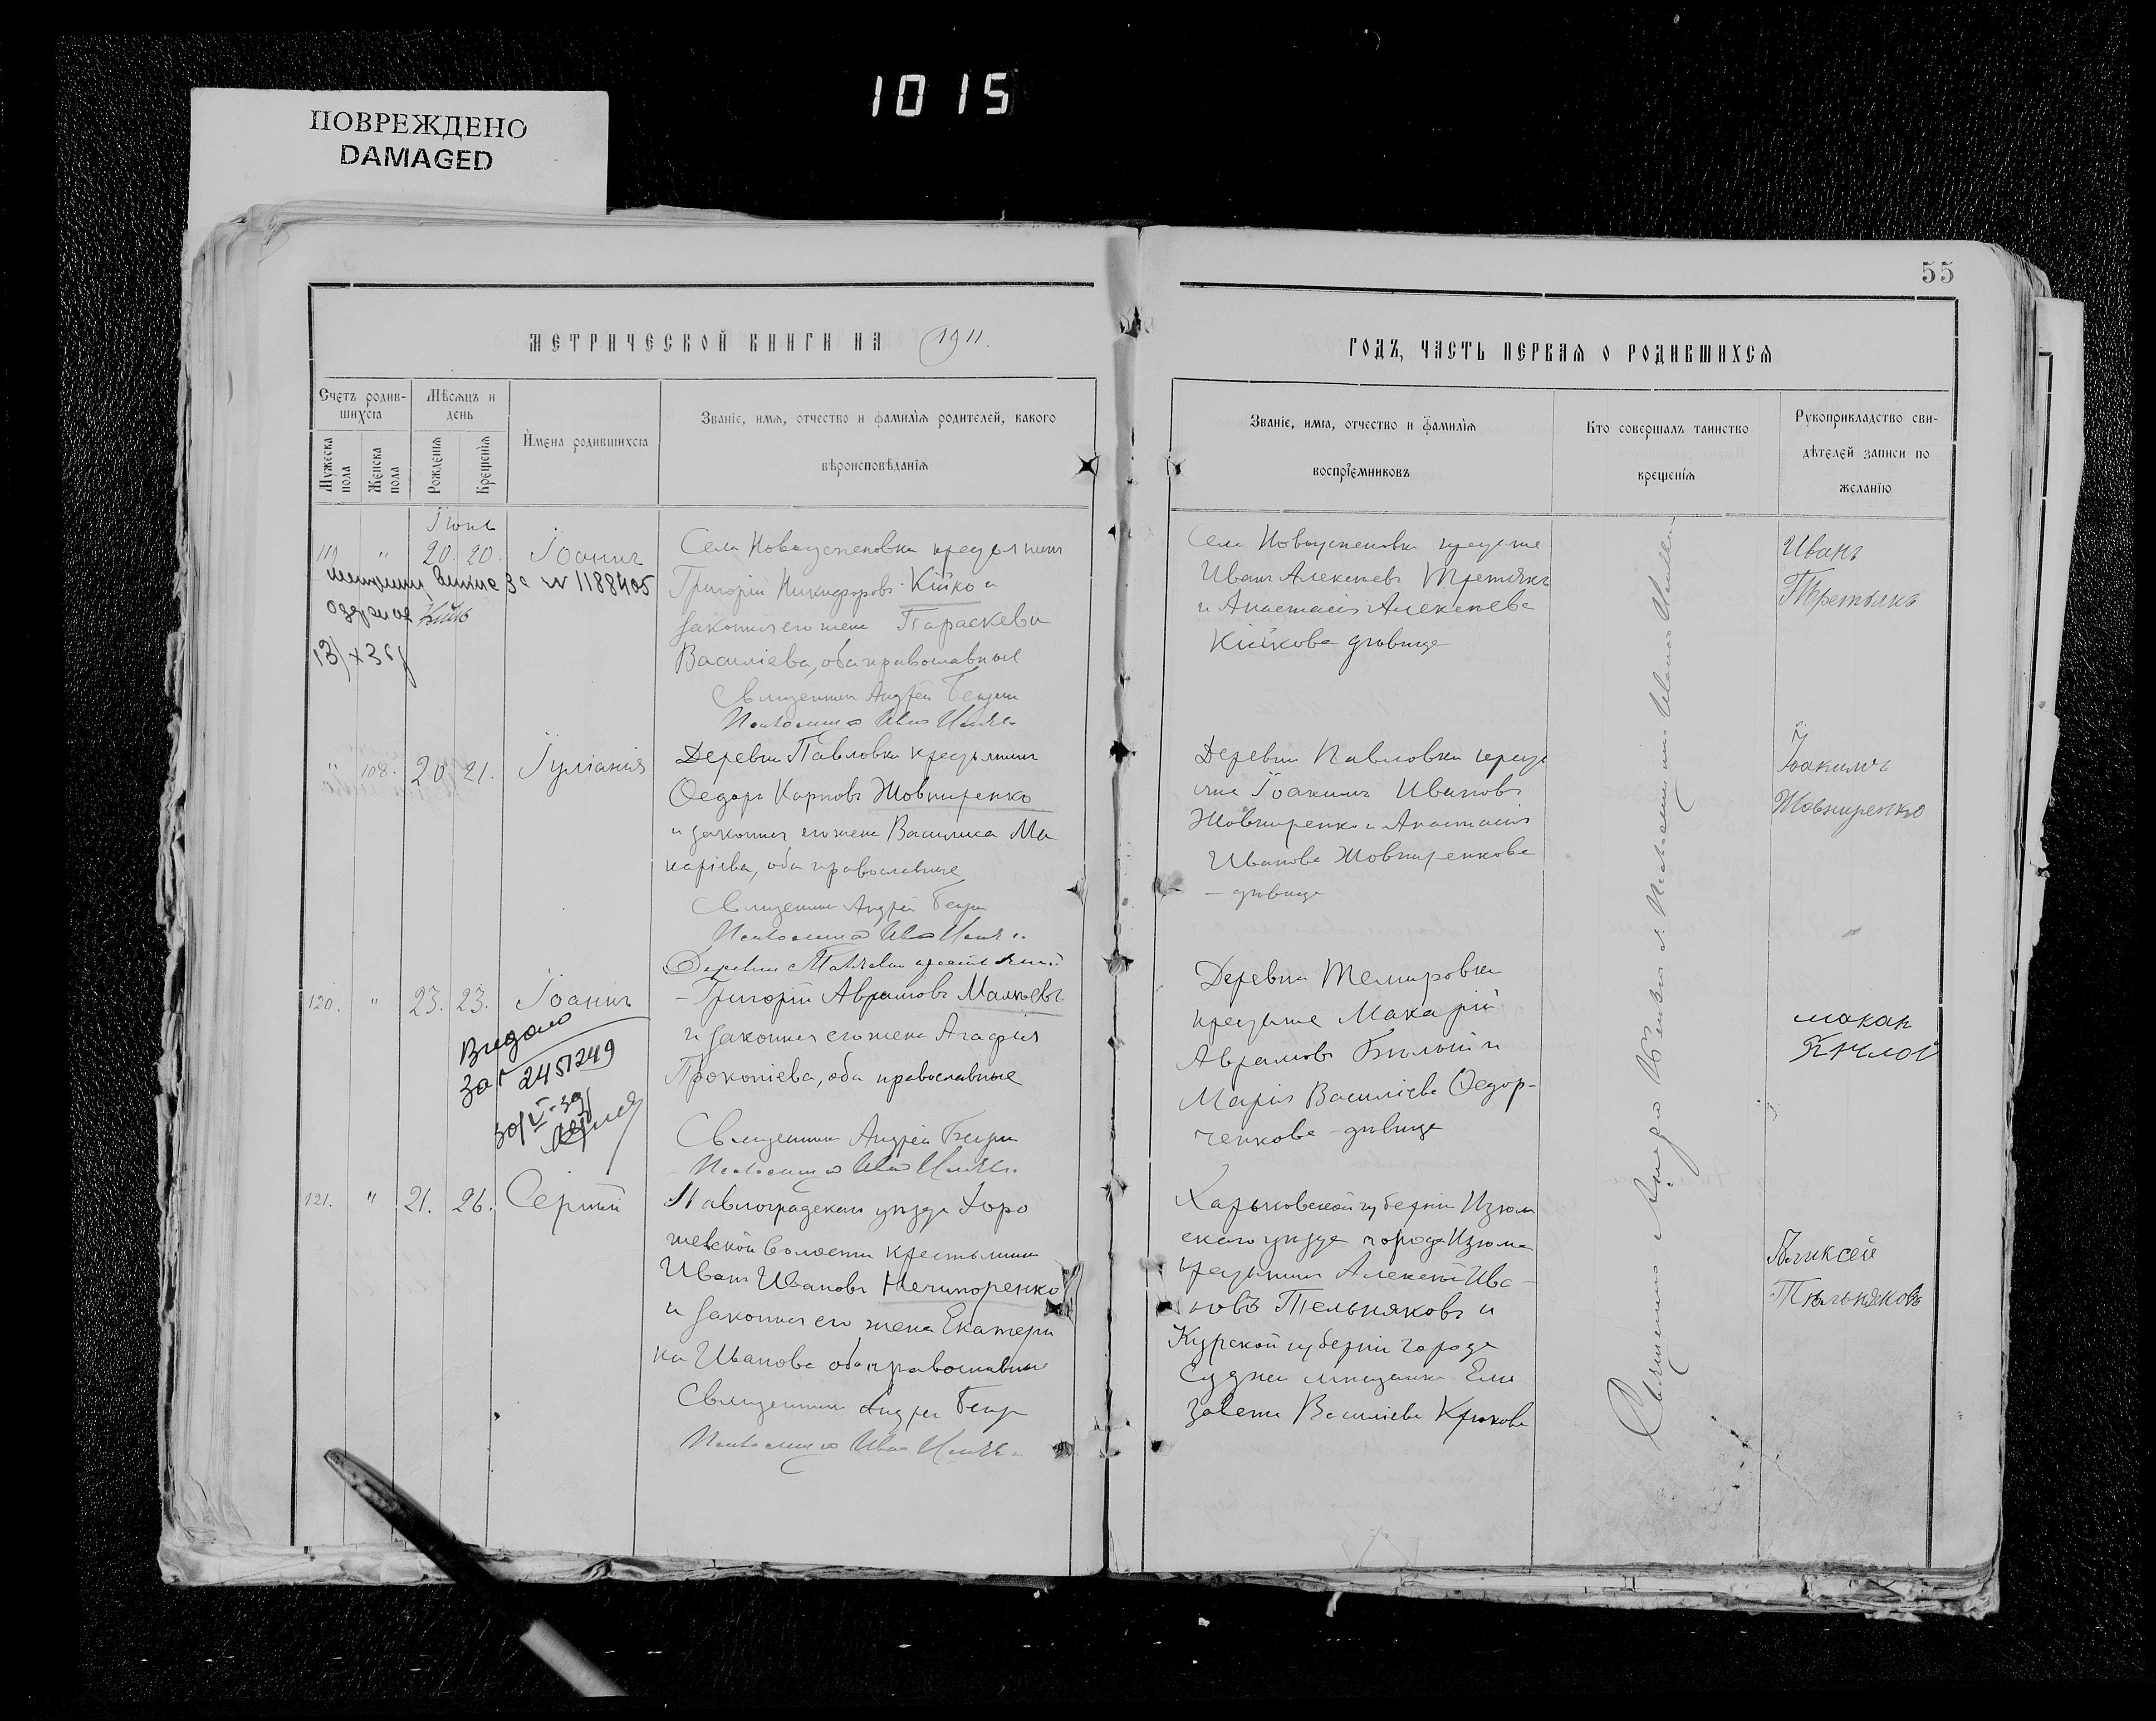 1015
ПОВРЕЖДЕНО
DAMAGED
55
МЕТРИЧЕСКОЙ КНИГИ НА 1911.
ГОДЪ, ЧАСТЬ ПЕРВАЯ О РОДИВШИХСЯ
Счетъ родив-
шихся
Мѣсяцъ и
день
Мужеска
пола
Женска
пола
Рожденія
Крещенія
Имена родившихся
Званіе, имя, отчество и фамилія родителей, какого
вѣроисповѣданія
Званіе, имя, отчество и фамилія
воспріемниковъ
Кто совершалъ таинство
крещенія
Рукоприкладство сви-
дѣтелей записи по
желанію
Іюнь
119 " 20. 20. Іоаннъ
№ 1188405
Села Новоуспеновки крестьянинъ
Григорій Никифоровъ Кійко и
законная его жена Параскева
Василіева, оба православные
Священникъ Андрей
Псаломщикъ
Села Новоуспеновки крестьяне
Иванъ Алексеевъ Третякъ
и Анастасія Алексеева
Кійкова дѣвица
Иванъ
Третьякъ
" 108. 20 21. Іуліанія
Деревни Павловки крестьянинъ
Ѳедоръ Карповъ Жовниренко
и законная его жена Василиса Ма
каріева, оба православные
Священникъ Андрей
Псаломщикъ
Деревни Павловки кресть
яне Іоакимъ Ивановъ
Жовниренко и Анастасія
Иванова Жовниренкова
- дѣвица
Іоакимъ
Жовниренко
120. " 23. 23. Іоаннъ
Видано
2451249
30/V-39
Деревни Павловки крестьянинъ
- Григорій Аврамовъ Малѣевъ
и законная его жена Агафія
Прокопіева, оба православные
Священникъ Андрей
Псаломщикъ
Деревни Темировки
крестьяне Макарій
Аврамовъ Билый и
Марія Василіева Ѳедор-
ченкова - дѣвица
макар
121. " 21. 26. Сергій
Павлоградскаго уѣзда
волости крестьянинъ
Иванъ Ивановъ Нечипоренко
и законная его жена Екатери
на Иванова оба православные
Священникъ Андрей
Псаломщикъ
Харьковской губерніи Изюм
скаго уѣзда города Изюма
крестьянинъ Алексей Ива-
новъ Тельняковъ и
Курской губерніи города
Суджи мѣщанка Ели
завета Василіева Крюкова
Аликсей
Тѣльняковъ
Священникъ Андрей